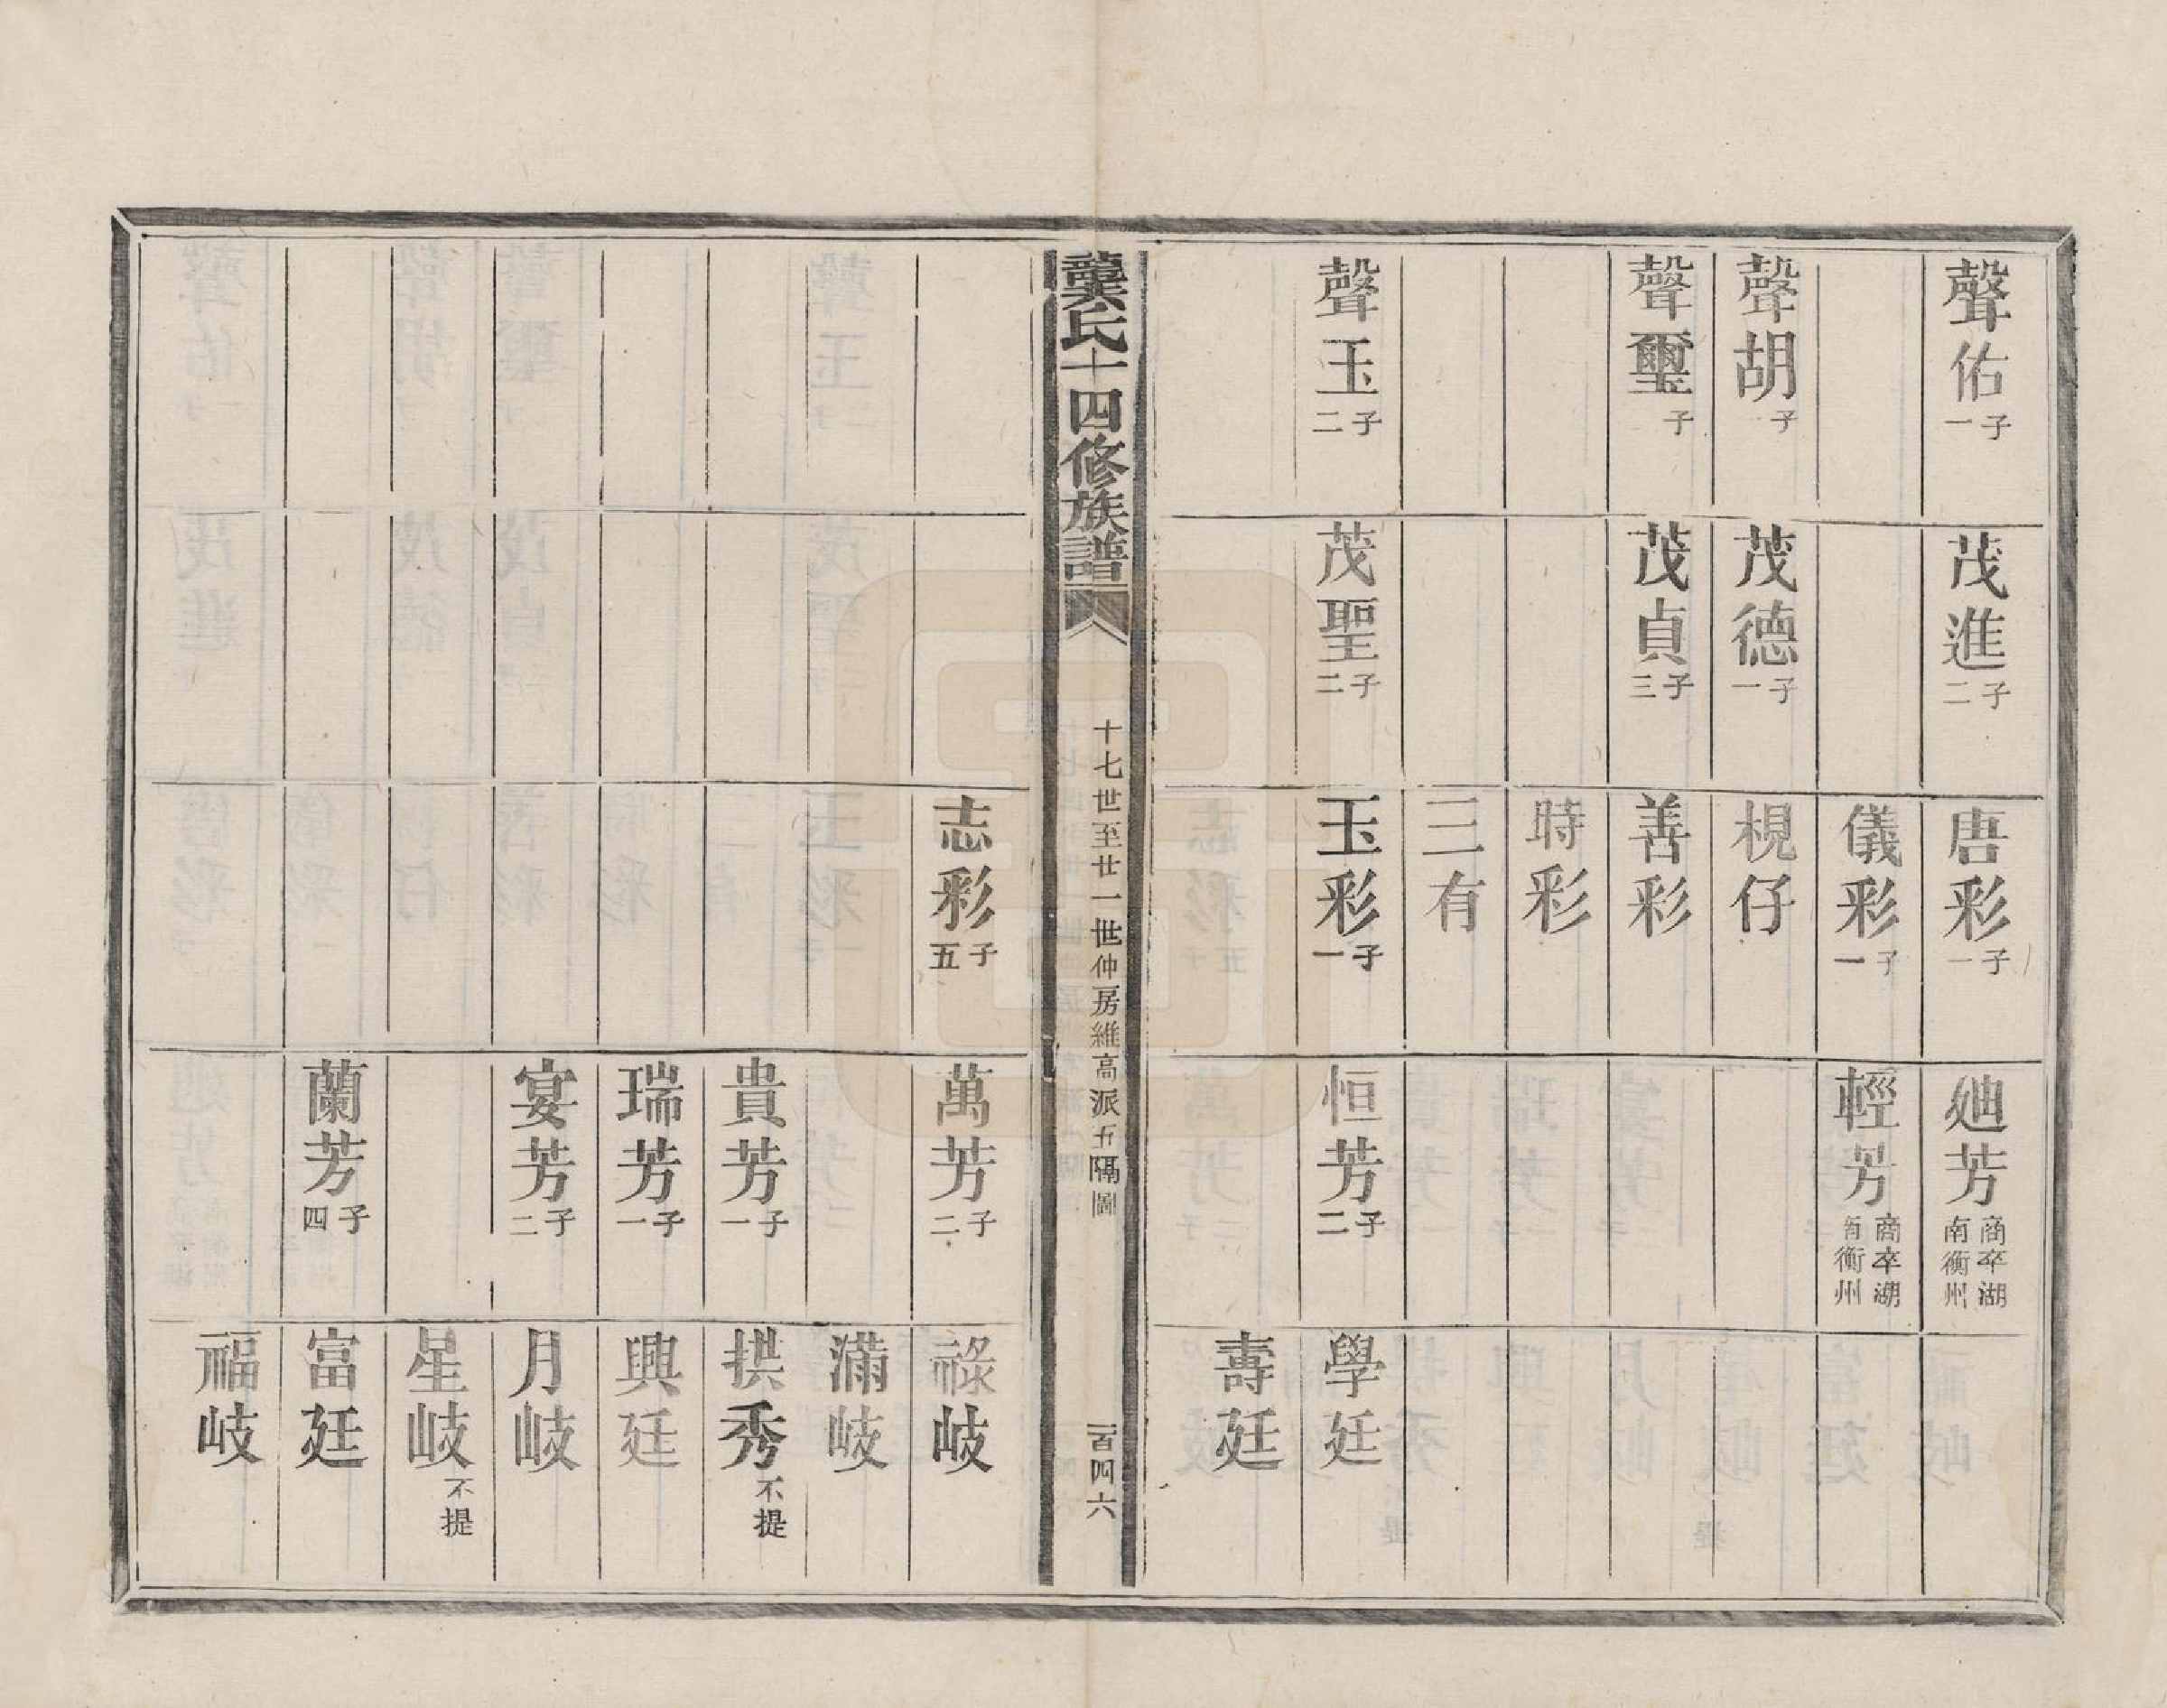 聲佑 子一
茂進 子二
唐彩 子一
廸芳 商卒湖南衡州
儀彩 子一
輕芳 商卒湖南衡州
聲胡 子一
茂德 子一
梘仔
聲璽 子
茂貞 子三
善彩
時彩
三有
聲玉 子二
茂聖 子二
玉彩 子一
恒芳 子二
學廷
壽廷
龔氏十四修族譜
十七世至廿一世仲房維高派五隔圖
一百四六
志彩 子五
萬芳 子二
祿岐
滿岐
貴芳 子一
拱秀 不提
瑞芳 子一
興廷
宴芳 子二
月岐
星岐 不提
蘭芳 子四
富廷
福岐